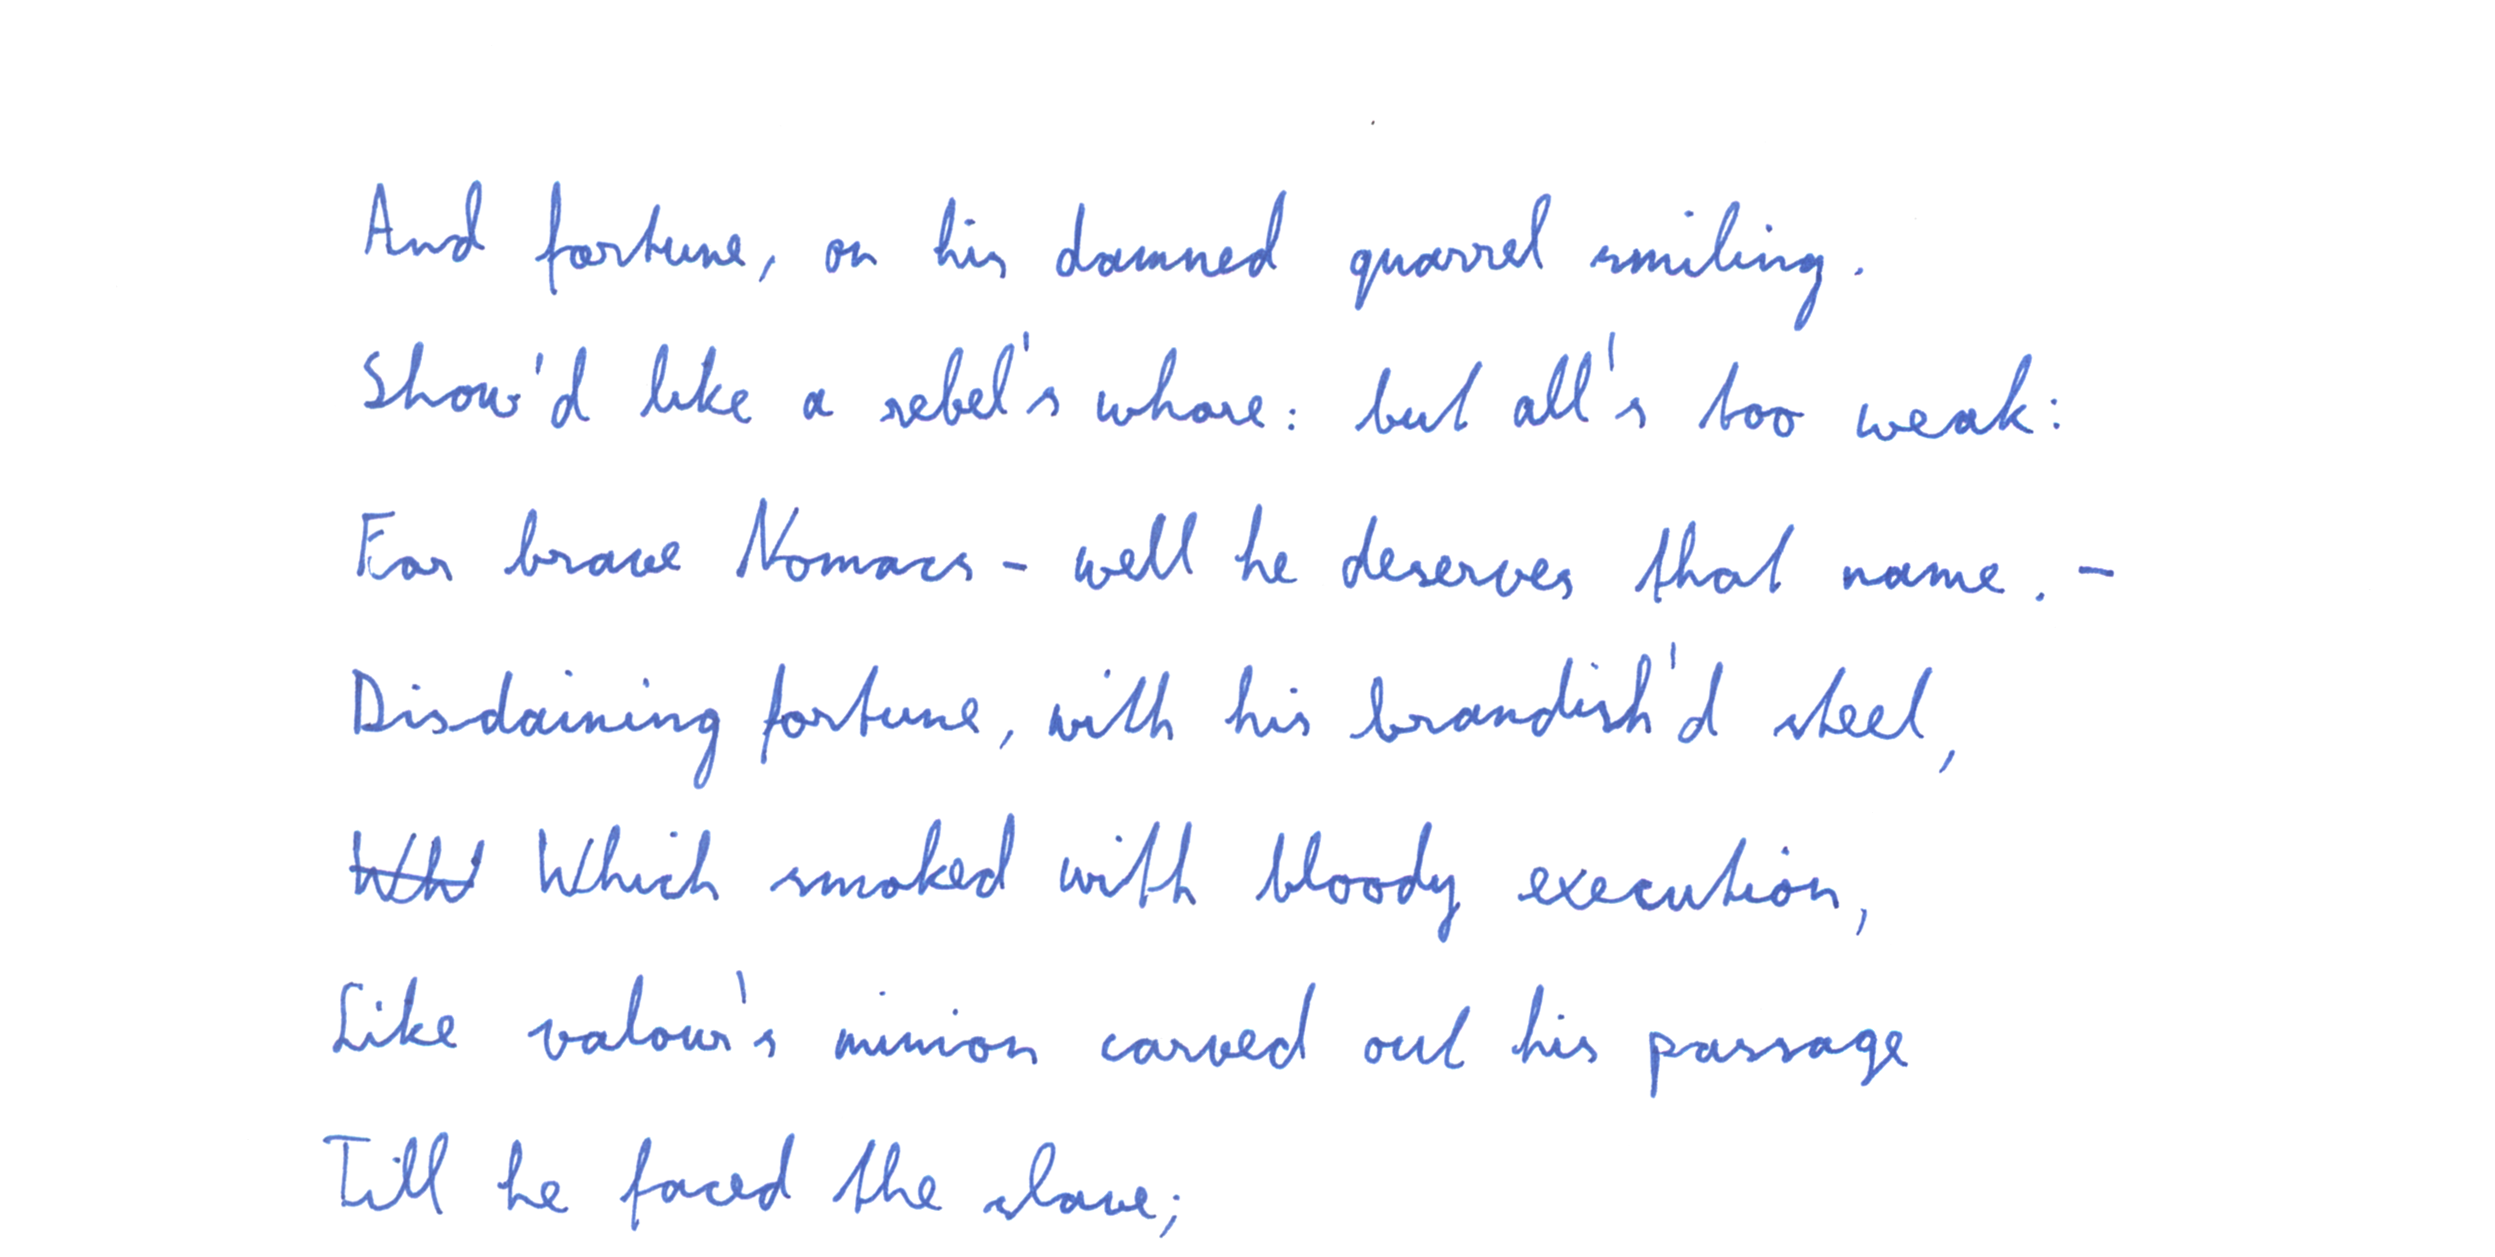 And fortune, on his damned quarrel smiling.
Show'd like a rebel's whore: but all's too weak:
For brave Nomacs - well he deserves that name. -
Disdaining fortune, with his brandish'd steel,
Which smoked with bloody execution,
Like valour's minion carved out his passage
Till he faced the slave;